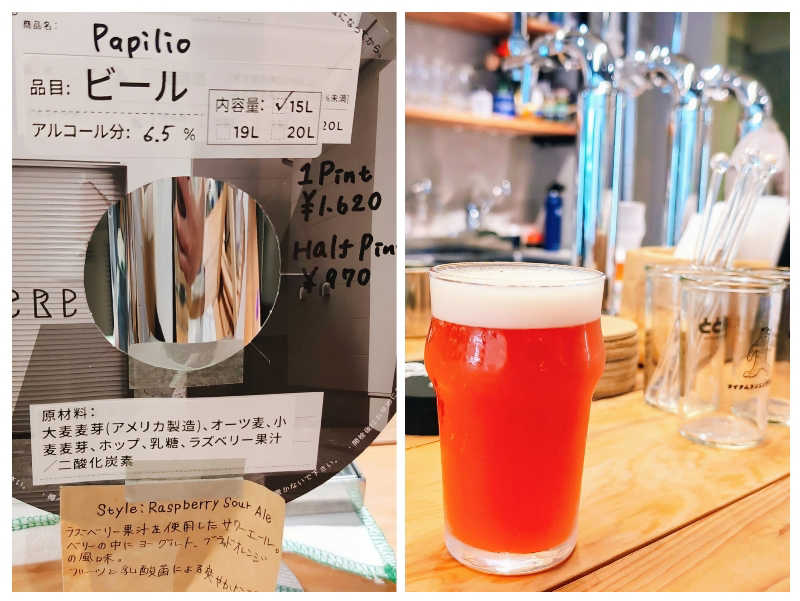 商品名:
Papilio
品目: ビール
内容量: ✓15L
19L 20L
アルコール分: 6.5 %
%未満
20L
1 Pint
¥1.620
Half Pin
¥,970
原材料:
大麦麦芽(アメリカ製造)、オーツ麦、小
麦麦芽、ホップ、乳糖、ラズベリー果汁
/二酸化炭素
Style: Raspberry Sour Ale
ラズベリー果汁を使用したサワーエール。
ベリーの中にヨーグルト、ブラッドオレンジ
の風味。
フルーツと乳酸菌による爽やか